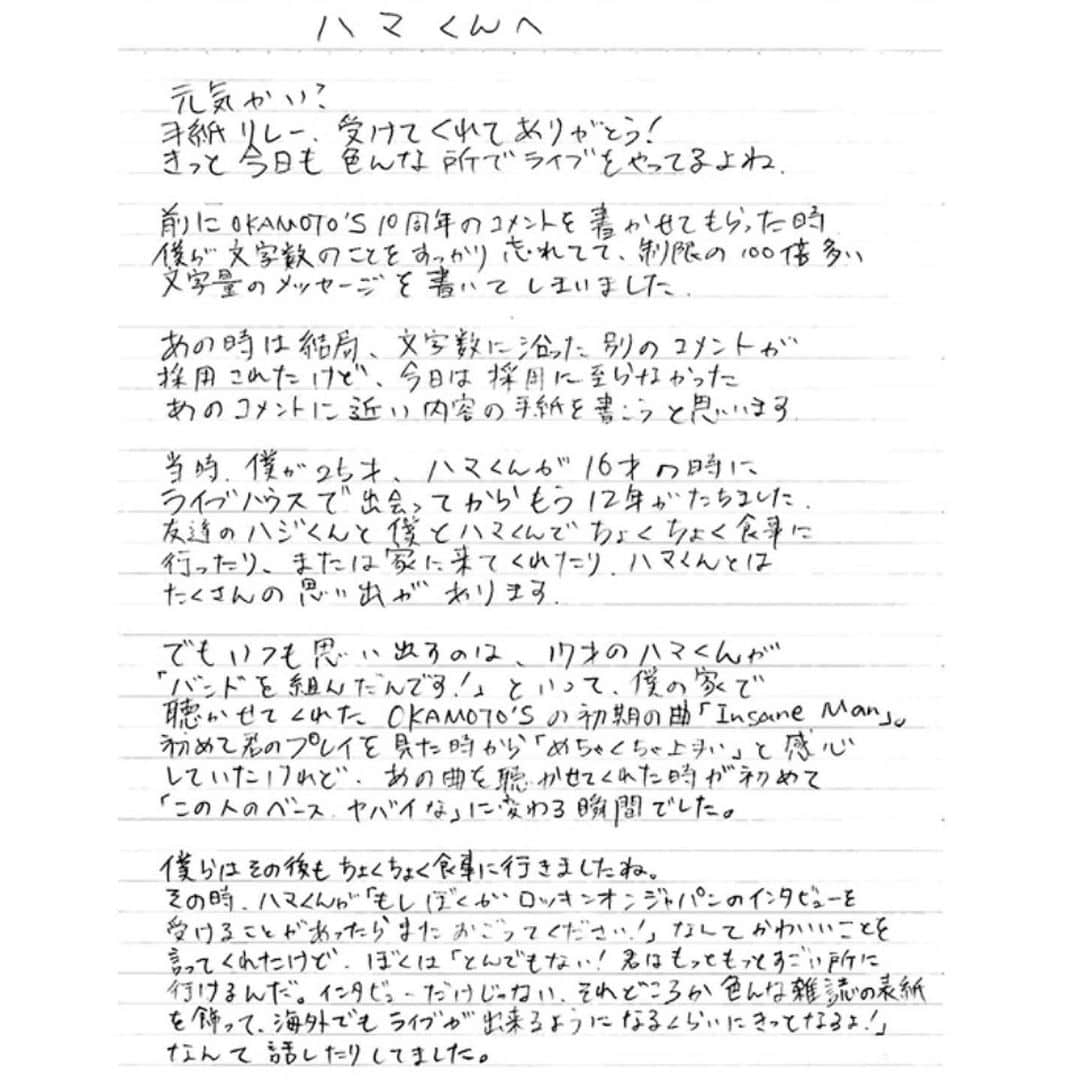 ハマくんへ
元気かい?
手紙リレー、受けてくれてありがとう!
きっと今日も色んな所でライブをやってるよね.
前にOKAMOTO'S 10周年のコメントを書かせてもらった時
僕が文字数のことをすっかり忘れてて、制限の100倍多い
文字量のメッセージを書いてしまいました.
あの時は結局、文字数に沿った別のコメントが
採用されたけど、今日は採用に至らなかった
あのコメントに近い内容の手紙を書こうと思います.
当時、僕が25才、ハマくんが16才の時に
ライブハウスで出会ってからもう12年がたちました.
友達のハジくんと僕とハマくんでちょくちょく食事に
行ったり、または家に来てくれたり、ハマくんとは
たくさんの思い出があります.
でもいつも思い出すのは、17才のハマくんが
「バンドを組んだんです!」といって、僕の家で
聴かせてくれたOKAMOTO'Sの初期の曲「Insane Man」。
初めて君のプレイを見た時から「めちゃくちゃ上手い」と感心
していたけれど、あの曲を聴かせてくれた時が初めて
「この人のベース、ヤバイな」に変わる瞬間でした。
僕らはその後もちょくちょく食事に行きましたね。
その時、ハマくんが「もしぼくがロッキンオンジャパンのインタビューを
受けることがあったらまたおごってください!」なんてかわいいことを
言ってくれたけど、ぼくは「とんでもない!君はもっともっとすごい所に
行けるんだ。インタビューだけじゃない、それどころか色んな雑誌の表紙
を飾って、海外でもライブが出来るようになるくらいにきっとなるよ!」
なんて話したりしてました。